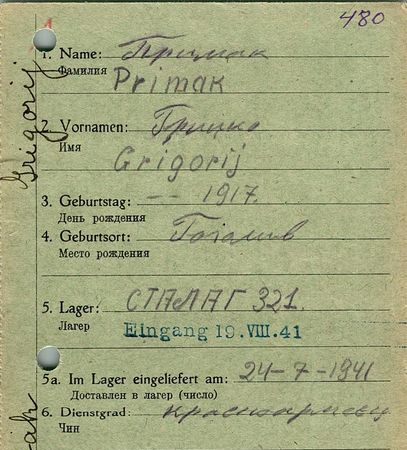 480
1. Name: Примак
Фамилия Primak
2. Vornamen: Грицко
Имя
Grigorij
3. Geburtstag: -- 1917
День рождения
4. Geburtsort:
Место рождения
5. Lager: СТАЛАГ 321.
Лагер
Eingang 19. VIII. 41
5a. Im Lager eingeliefert am: 24-7-1941
Доставлен в лагер (число)
6. Dienstgrad: красноармеец
Чин
Grigorij